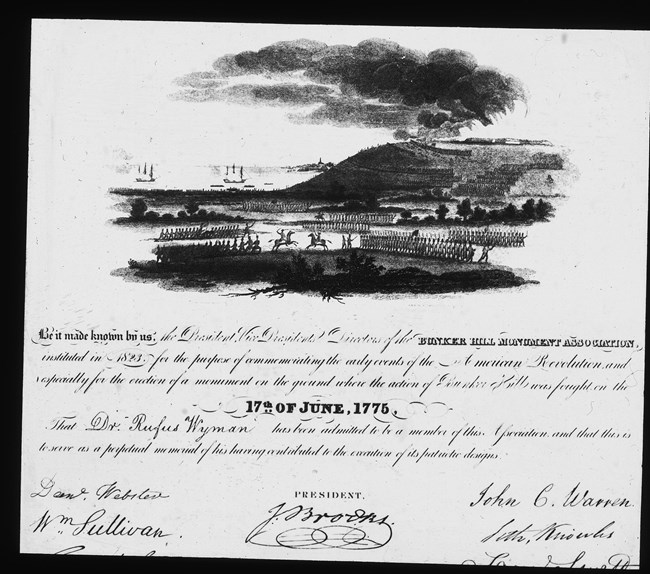 Be it made known by us, the President, Vice Presidents & Directors of the BUNKER HILL MONUMENT ASSOCIATION,
instituted in 1823, for the purpose of commemorating the early events of the American Revolution, and
especially for the erection of a monument on the ground where the action of Bunker Hill was fought, on the
17th OF JUNE, 1775,
That Dr. Rufus Wyman has been admitted to be a member of this Association, and that this is
to serve as a perpetual memorial of his having contributed to the execution of its patriotic designs.
PRESIDENT,
Danl. Webster
J. Brooks.
John C. Warren
Wm Sullivan.
Seth Knowles